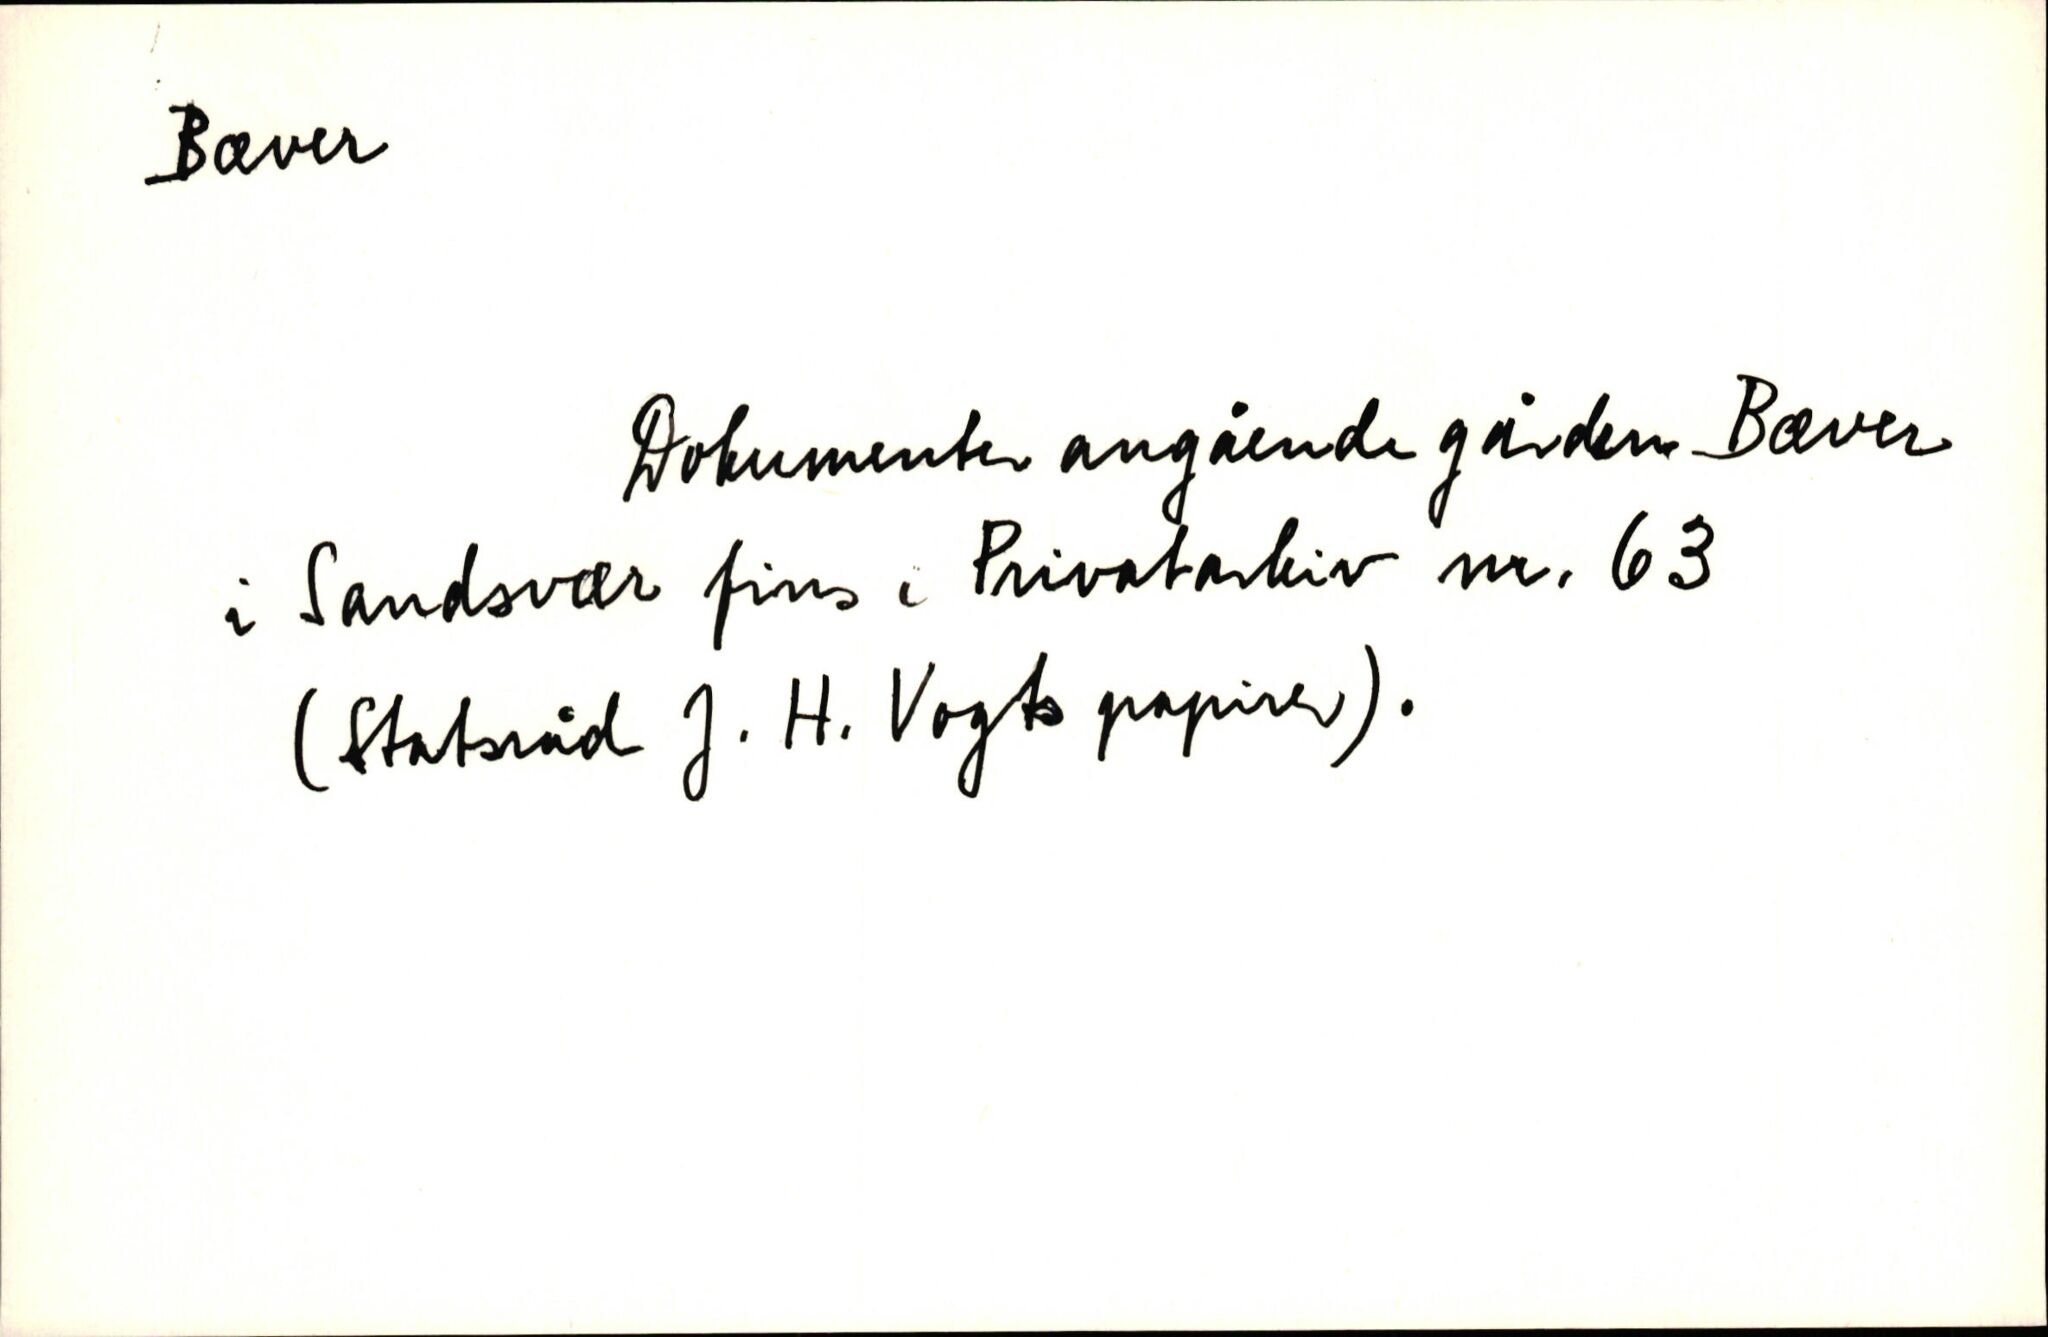 Bæver
Dokumenter angående gården Bæver
i Sandsvær fins i Privatarkiv nr. 63
(Statsråd J. H. Vogts papirer).